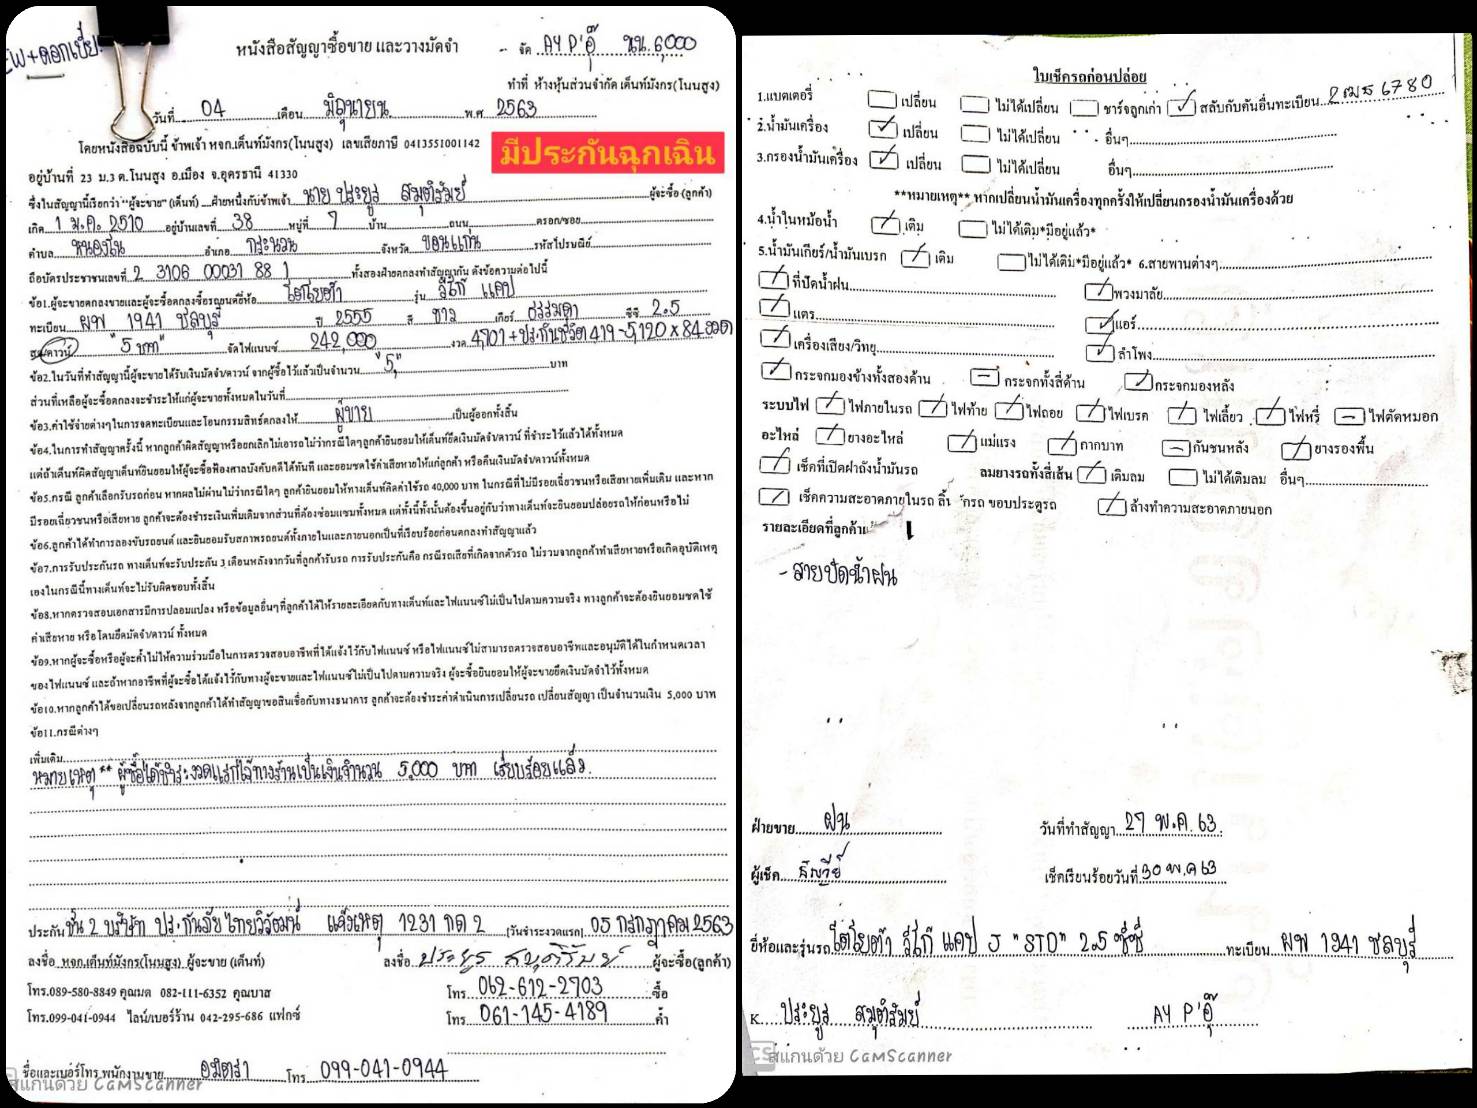 EW+ดอกเบี้ย
หนังสือสัญญาซื้อขาย และวางมัดจำ
- จัด AY P'อุ๊ นน.6,000
ทำที่ ห้างหุ้นส่วนจำกัด เต็นท์มังกร(โนนสูง)
วันที่ 04 เดือน มิถุนายน พ.ศ 2563
โดยหนังสือฉบับนี้ ข้าพเจ้า หจก.เต็นท์มังกร(โนนสูง) เลขเสียภาษี 0413551001142
มีประกันฉุกเฉิน
อยู่บ้านที่ 23 ม.3 ต.โนนสูง อ.เมือง จ.อุดรธานี 41330
ซึ่งในสัญญานี้เรียกว่า "ผู้จะขาย" (เต็นท์) ฝ่ายหนึ่งกับข้าพเจ้า นาย ประยูร สมุติรัมย์ ผู้จะซื้อ (ลูกค้า)
เกิด 1 ม.ค. 2510 อยู่บ้านเลขที่ 38 หมู่ที่ 7 บ้าน ถนน ตรอก/ซอย
ตำบล หนองโน อำเภอ กระนวน จังหวัด ขอนแก่น รหัสไปรษณีย์
ถือบัตรประชาชนเลขที่ 2 3106 00031 88 1 ทั้งสองฝ่ายตกลงทำสัญญากัน ดังข้อความต่อไปนี้
ข้อ1.ผู้จะขายตกลงขายและผู้จะซื้อตกลงซื้อรถยนต์ยี่ห้อ โตโยต้า รุ่น วีโก้ แคป
ทะเบียน ผพ 1941 ชลบุรี ปี 2555 สี ขาว เกียร์ ธรรมดา ซีซี 2.5
สด/ดาวน์ "5 บาท" จัดไฟแนนซ์ 242,000 งวด 4,701+ประกันชีวิต 419-5,120 x 84 งวด
ข้อ2.ในวันที่ทำสัญญานี้ผู้จะขายได้รับเงินมัดจำ/ดาวน์ จากผู้ซื้อไว้แล้วเป็นจำนวน "5" บาท
ส่วนที่เหลือผู้จะซื้อตกลงจะชำระให้แก่ผู้จะขายทั้งหมดในวันที่
ข้อ3.ค่าใช้จ่ายต่างๆในการจดทะเบียนและโอนกรรมสิทธิ์ตกลงให้ ผู้ขาย เป็นผู้ออกทั้งสิ้น
ข้อ4.ในการทำสัญญาครั้งนี้ หากลูกค้าผิดสัญญาหรือยกเลิกไม่เอารถไม่ว่ากรณีใดๆลูกค้ายินยอมให้เต็นท์ยึดเงินมัดจำ/ดาวน์ ที่ชำระไว้แล้วได้ทั้งหมด
แต่ถ้าเต็นท์ผิดสัญญาเต็นท์ยินยอมให้ผู้จะซื้อฟ้องศาลบังคับคดีได้ทันที และยอมชดใช้ค่าเสียหายให้แก่ลูกค้า หรือคืนเงินมัดจำ/ดาวน์ทั้งหมด
ข้อ5.กรณี ลูกค้าเลือกรับรถก่อน หากผลไม่ผ่านไม่ว่ากรณีใดๆ ลูกค้ายินยอมให้ทางเต็นท์คิดค่าใช้รถ 40,000 บาท ในกรณีที่ไม่มีรอยเฉี่ยวชนหรือเสียหายเพิ่มเติม และหาก
มีรอยเฉี่ยวชนหรือเสียหาย ลูกค้าจะต้องชำระเงินเพิ่มเติมจากส่วนที่ต้องซ่อมแซมทั้งหมด แต่ทั้งนี้ทั้งนั้นต้องขึ้นอยู่กับว่าทางเต็นท์จะยินยอมปล่อยรถให้ก่อนหรือไม่
ข้อ6.ลูกค้าได้ทำการลองขับรถยนต์ และยินยอมรับสภาพรถยนต์ทั้งภายในและภายนอกเป็นที่เรียบร้อยก่อนตกลงทำสัญญาแล้ว
ข้อ7.การรับประกันรถ ทางเต็นท์จะรับประกัน 3 เดือนหลังจากวันที่ลูกค้ารับรถ การรับประกันคือ กรณีรถเสียที่เกิดจากตัวรถ ไม่รวมจากลูกค้าทำเสียหายหรือเกิดอุบัติเหตุ
เองในกรณีนี้ทางเต็นท์จะไม่รับผิดชอบทั้งสิ้น
ข้อ8.หากตรวจสอบเอกสารมีการปลอมแปลง หรือข้อมูลอื่นๆที่ลูกค้าได้ให้รายละเอียดกับทางเต็นท์และไฟแนนซ์ไม่เป็นไปตามความจริง ทางลูกค้าจะต้องยินยอมชดใช้
ค่าเสียหาย หรือโดนยึดมัดจำ/ดาวน์ ทั้งหมด
ข้อ9.หากผู้จะซื้อหรือผู้จะค้ำไม่ให้ความร่วมมือในการตรวจสอบอาชีพที่ได้แจ้งไว้กับไฟแนนซ์ หรือไฟแนนซ์ไม่สามารถตรวจสอบอาชีพและอนุมัติได้ในกำหนดเวลา
ของไฟแนนซ์ และถ้าหากอาชีพที่ผู้จะซื้อได้แจ้งไว้กับทางผู้จะขายและไฟแนนซ์ไม่เป็นไปตามความจริง ผู้จะซื้อยินยอมให้ผู้จะขายยึดเงินมัดจำไว้ทั้งหมด
ข้อ10.หากลูกค้าได้ขอเปลี่ยนรถหลังจากลูกค้าได้ทำสัญญาขอสินเชื่อกับทางธนาคาร ลูกค้าจะต้องชำระค่าดำเนินการเปลี่ยนรถ เปลี่ยนสัญญา เป็นจำนวนเงิน 5,000 บาท
ข้อ11.กรณีต่างๆ
เพิ่มเติม
หมายเหตุ ** ผู้ซื้อได้ชำระงวดแรกไว้ทางร้านเป็นเงินจำนวน 5,000 บาท เรียบร้อยแล้ว.
ประกัน ชั้น 2 บริษัท ประกันภัยไทยวิวัฒน์ แจ้งเหตุ 1231 กด 2 (วันชำระงวดแรก) 05 กรกฎาคม 2563
ลงชื่อ หจก.เต็นท์มังกร(โนนสูง) ผู้จะขาย (เต็นท์) ลงชื่อ ประยูร สมุติรัมย์ ผู้จะซื้อ(ลูกค้า)
โทร.089-580-8849 คุณมด 082-111-6352 คุณบาส โทร 062-612-2703 ซื้อ
โทร.099-041-0944 ไลน์/เบอร์ร้าน 042-295-686 แฟกซ์ โทร 061-145-4189 ค้ำ
ชื่อและเบอร์โทร พนักงานขาย อมิตรา โทร 099-041-0944
สแกนด้วย CamScanner
ใบเช็ครถก่อนปล่อย
1.แบตเตอรี่ เปลี่ยน ไม่ได้เปลี่ยน ชาร์จลูกเก่า สลับกับคันอื่นทะเบียน 2ฒธ 6780
2.น้ำมันเครื่อง เปลี่ยน ไม่ได้เปลี่ยน อื่นๆ
3.กรองน้ำมันเครื่อง เปลี่ยน ไม่ได้เปลี่ยน อื่นๆ
**หมายเหตุ** หากเปลี่ยนน้ำมันเครื่องทุกครั้งให้เปลี่ยนกรองน้ำมันเครื่องด้วย
4.น้ำในหม้อน้ำ เติม ไม่ได้เติม*มีอยู่แล้ว*
5.น้ำมันเกียร์/น้ำมันเบรก เติม ไม่ได้เติม*มีอยู่แล้ว* 6.สายพานต่างๆ
ที่ปัดน้ำฝน พวงมาลัย
แตร แอร์
เครื่องเสียง/วิทยุ ลำโพง
กระจกมองข้างทั้งสองด้าน กระจกทั้งสี่ด้าน กระจกมองหลัง
ระบบไฟ ไฟภายในรถ ไฟท้าย ไฟถอย ไฟเบรค ไฟเลี้ยว ไฟหรี่ ไฟตัดหมอก
อะไหล่ ยางอะไหล่ แม่แรง กากบาท กันชนหลัง ยางรองพื้น
เช็คที่เปิดฝาถังน้ำมันรถ ลมยางรถทั้งสี่เส้น เติมลม ไม่ได้เติมลม อื่นๆ
เช็คความสะอาดภายในรถ ลิ้ กรถ ขอบประตูรถ ล้างทำความสะอาดภายนอก
รายละเอียดที่ลูกค้า
- สายปัดน้ำฝน
ฝ่ายขาย ฝน วันที่ทำสัญญา 27 พ.ค. 63
ผู้เช็ค เช็คเรียบร้อยวันที่ 30 พ.ค 63
ยี่ห้อและรุ่นรถ โตโยต้า วีโก้ แคป J "STD" 2.5 ซีซี ทะเบียน ผพ 1941 ชลบุรี
K. ประยูร สมุติรัมย์ AY P'อุ๊
CS สแกนด้วย CamScanner